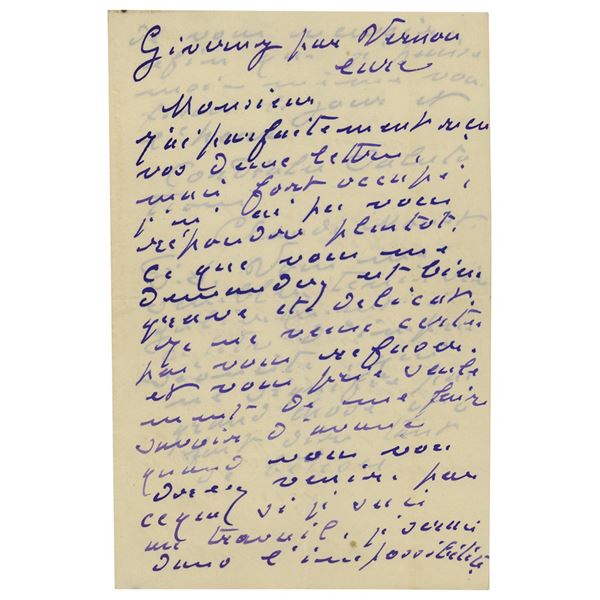 Giverny par Vernon
eure
Monsieur
j'ai parfaitement recu
vos deux lettres,
mais fort occupé,
je n'ai pu vous
répondre plutot.
ce que vous me
demandez est bien
grave et delicat,
je ne veux certes
pas vous refuser.
et vous prie seule
ment de me faire
savoir d'avance
quand vous vou
drez venir. par
ceque si je suis
au travail, je serai
dans l'impossibilité